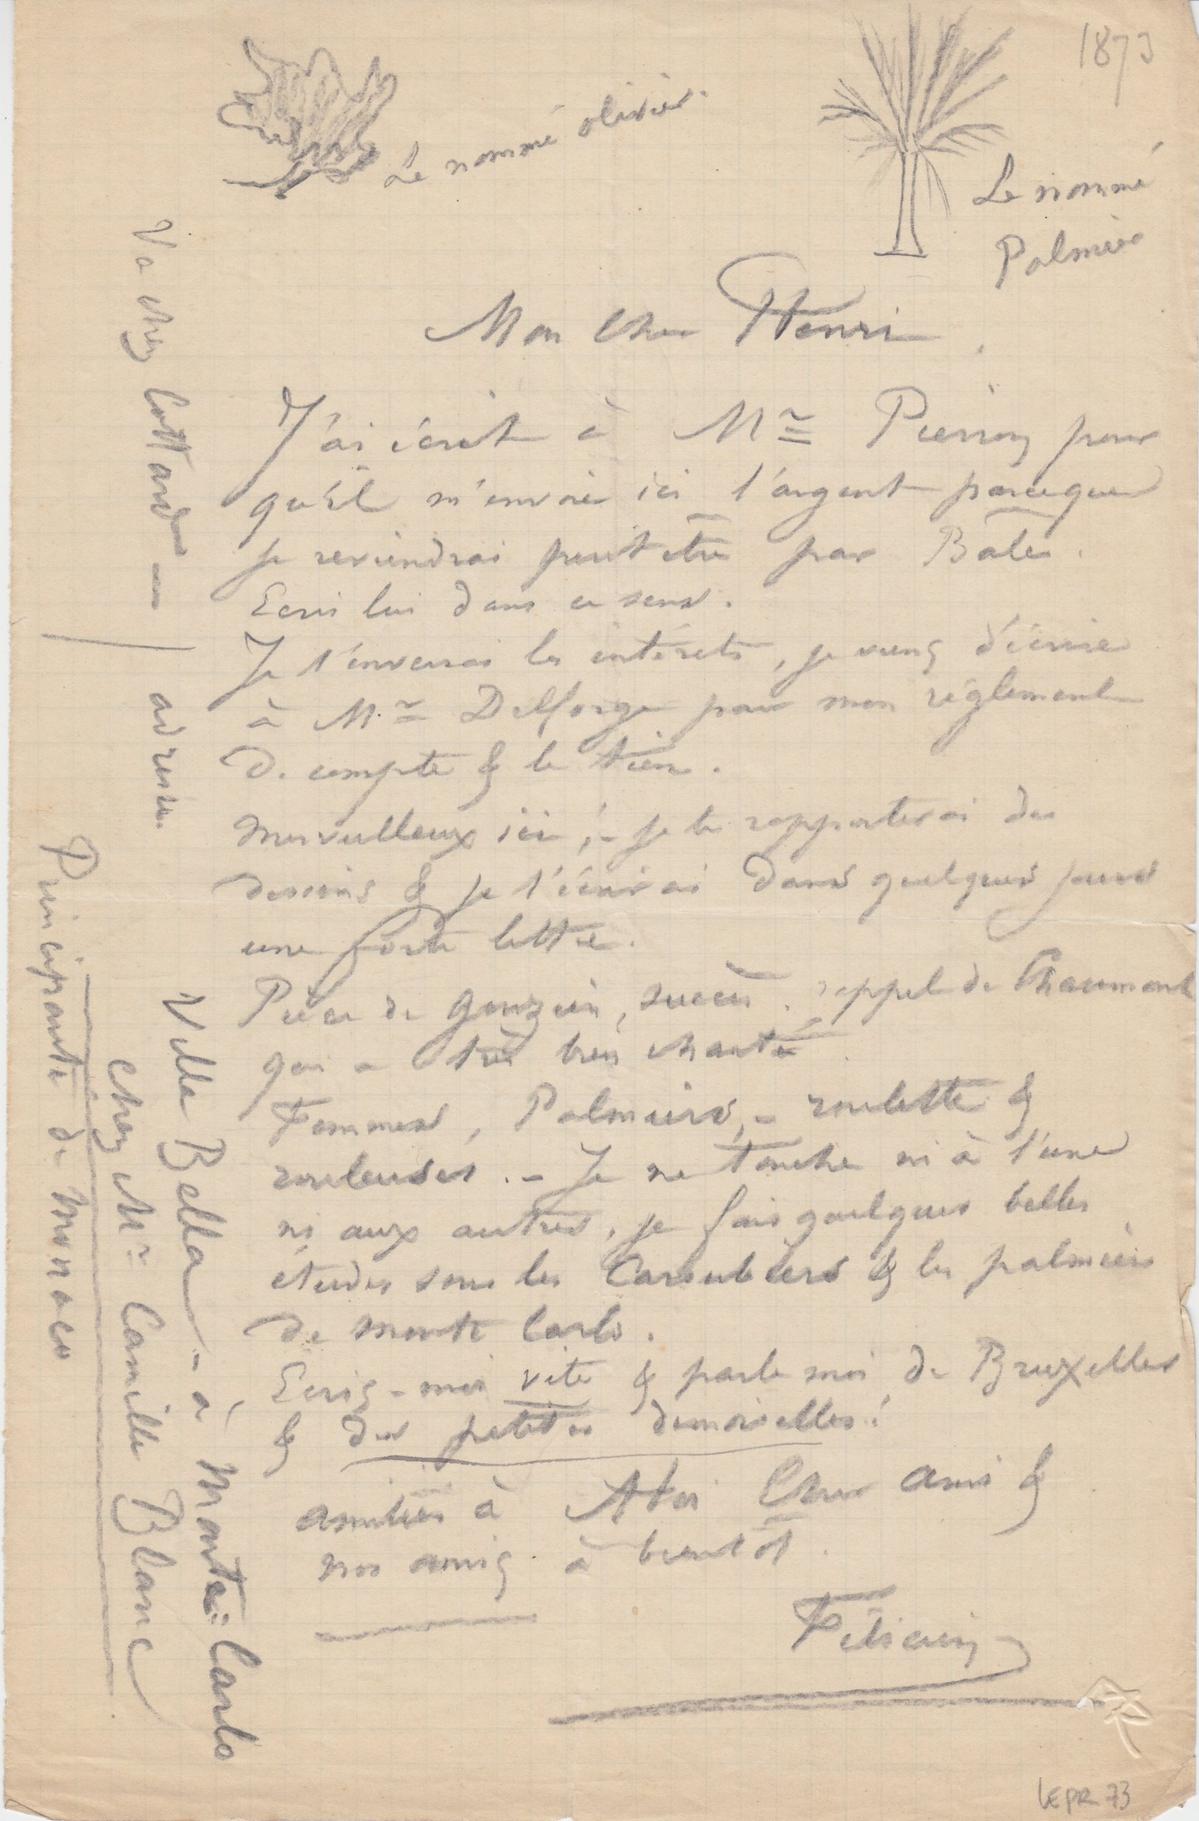 1873
Le nommé olivier.
Le nommé
Palmier
Mon cher Henri
J'ai écrit à Mr Pierron pour
qu'il m'envoie ici l'argent parceque
je reviendrai peut être par Bâle.
Ecris lui dans ce sens.
Je t'enverrai les intérêts, je viens d'écrire
à Mr Delforge pour mon règlement
de compte & le tien.
Merveilleux ici, - je te rapporterai des
dessins & je t'écrirai dans quelques jours
une forte lettre.
Pièce de Gouzien, succès. rappel de Thaumont
qui a très bien chanté.
Femmes, Palmiers, - roulette &
rouleuses. - Je ne touche ni à l'une
ni aux autres, je fais quelques belles
études sous les Caroubiers & les palmiers
de Monte Carlo.
Ecris-moi vite & parle moi de Bruxelles
& des petites demoiselles!
amitiés à cher ami &
nos amis. à bientôt.
Félicien
Va chez Cottard — adresse.
Villa Bella - à Monte-Carlo
chez Mr Camille Blanc
Principauté de Monaco
LEPR 73